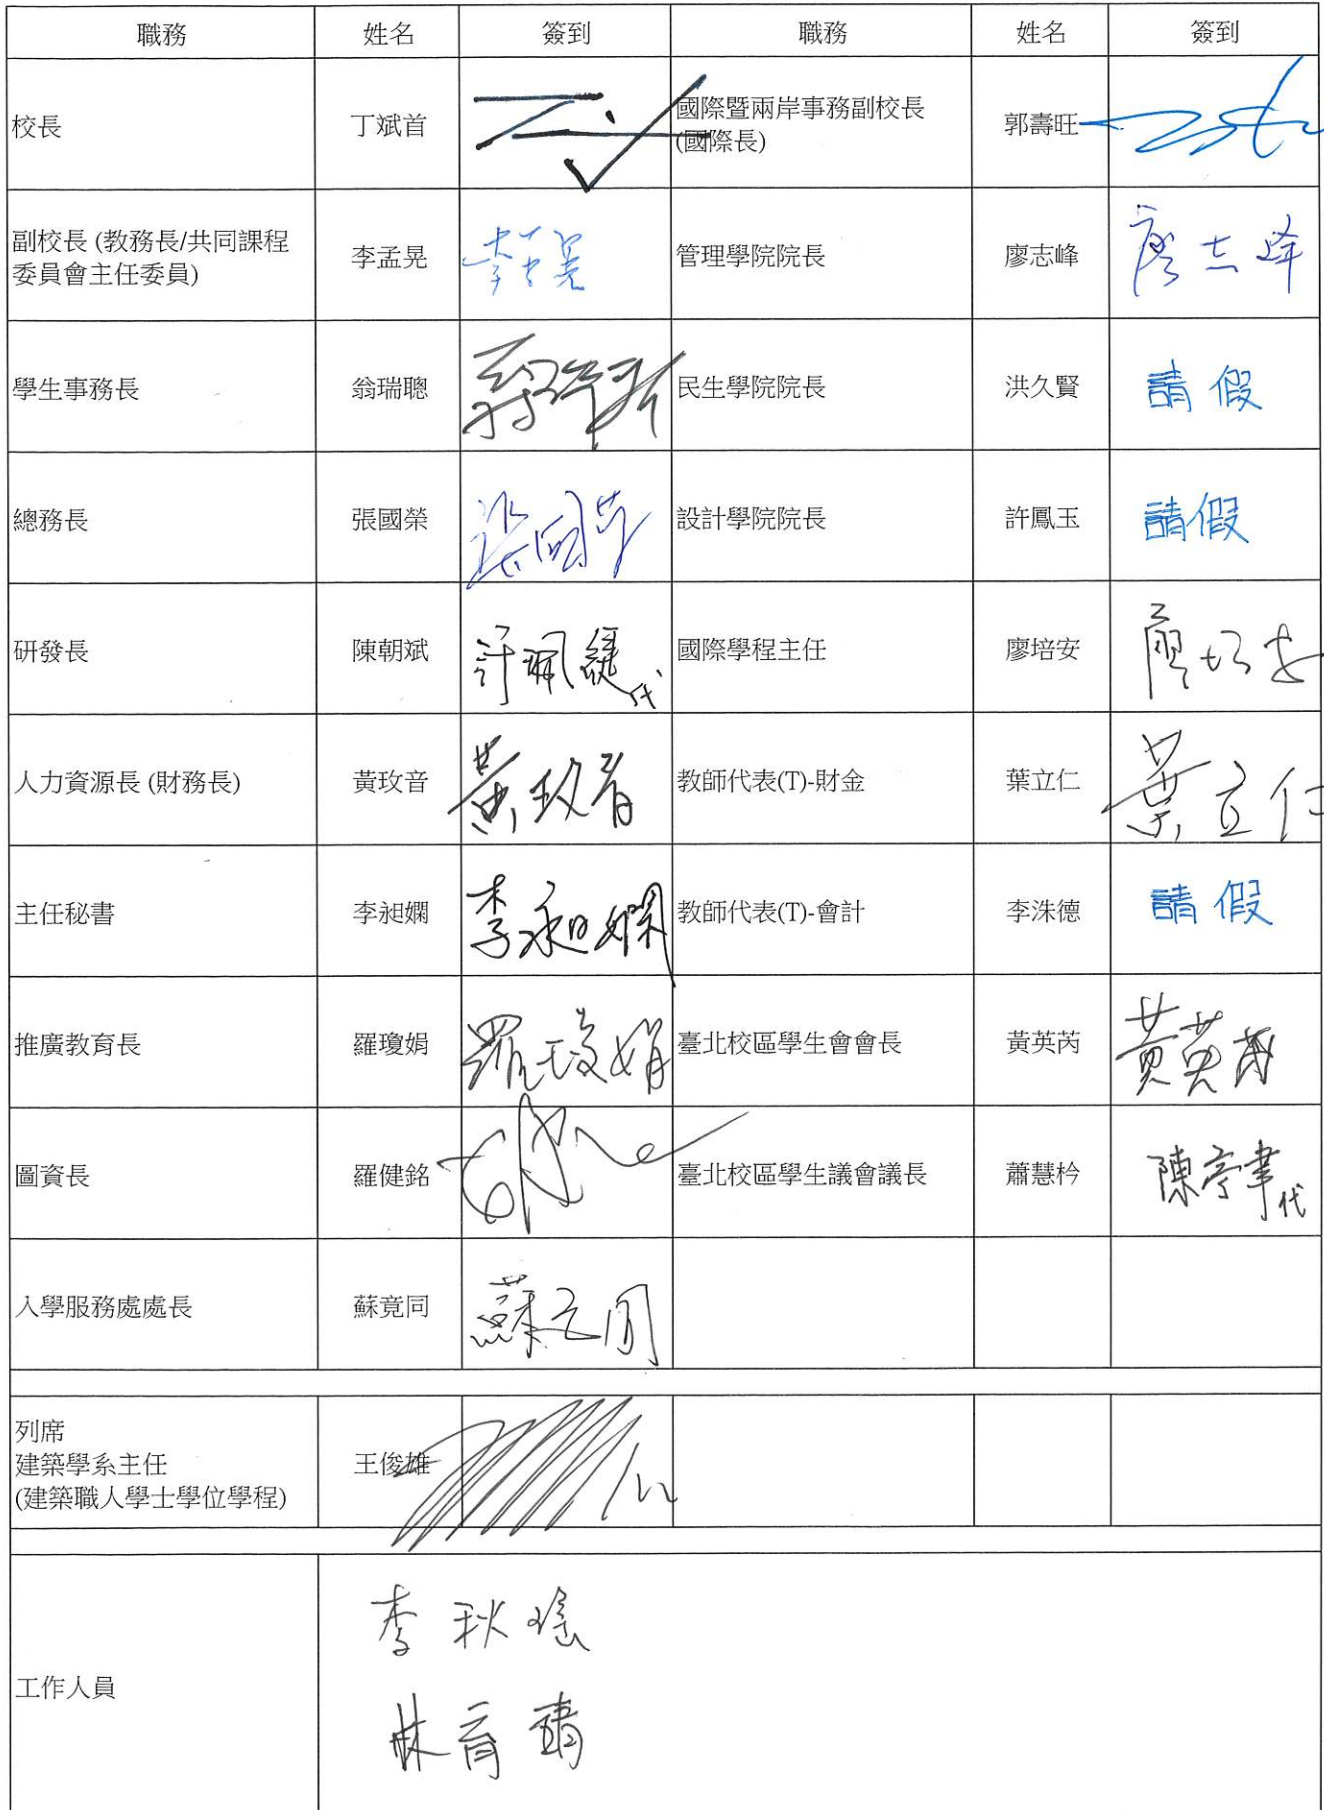 職務 姓名 簽到 職務 姓名 簽到
校長 丁斌首 國際暨兩岸事務副校長 郭壽旺
(國際長)
副校長 (教務長/共同課程 李孟晃 李孟晃 管理學院院長 廖志峰 廖志峰
委員會主任委員)
學生事務長 翁瑞聰 民生學院院長 洪久賢 請假
總務長 張國榮 張國榮 設計學院院長 許鳳玉 請假
研發長 陳朝斌 許珮 代 國際學程主任 廖培安 廖培安
人力資源長 (財務長) 黃玫音 黃玫音 教師代表(T)-財金 葉立仁 葉立仁
主任秘書 李昶嫻 李昶嫻 教師代表(T)-會計 李洙德 請假
推廣教育長 羅瓊娟 羅瓊娟 臺北校區學生會會長 黃英芮 黃英芮
圖資長 羅健銘 臺北校區學生議會議長 蕭慧枔 陳亭聿代
入學服務處處長 蘇竟同 蘇竟同
列席
建築學系主任 王俊雄
(建築職人學士學位學程)
工作人員
李秋瑤
林育靖